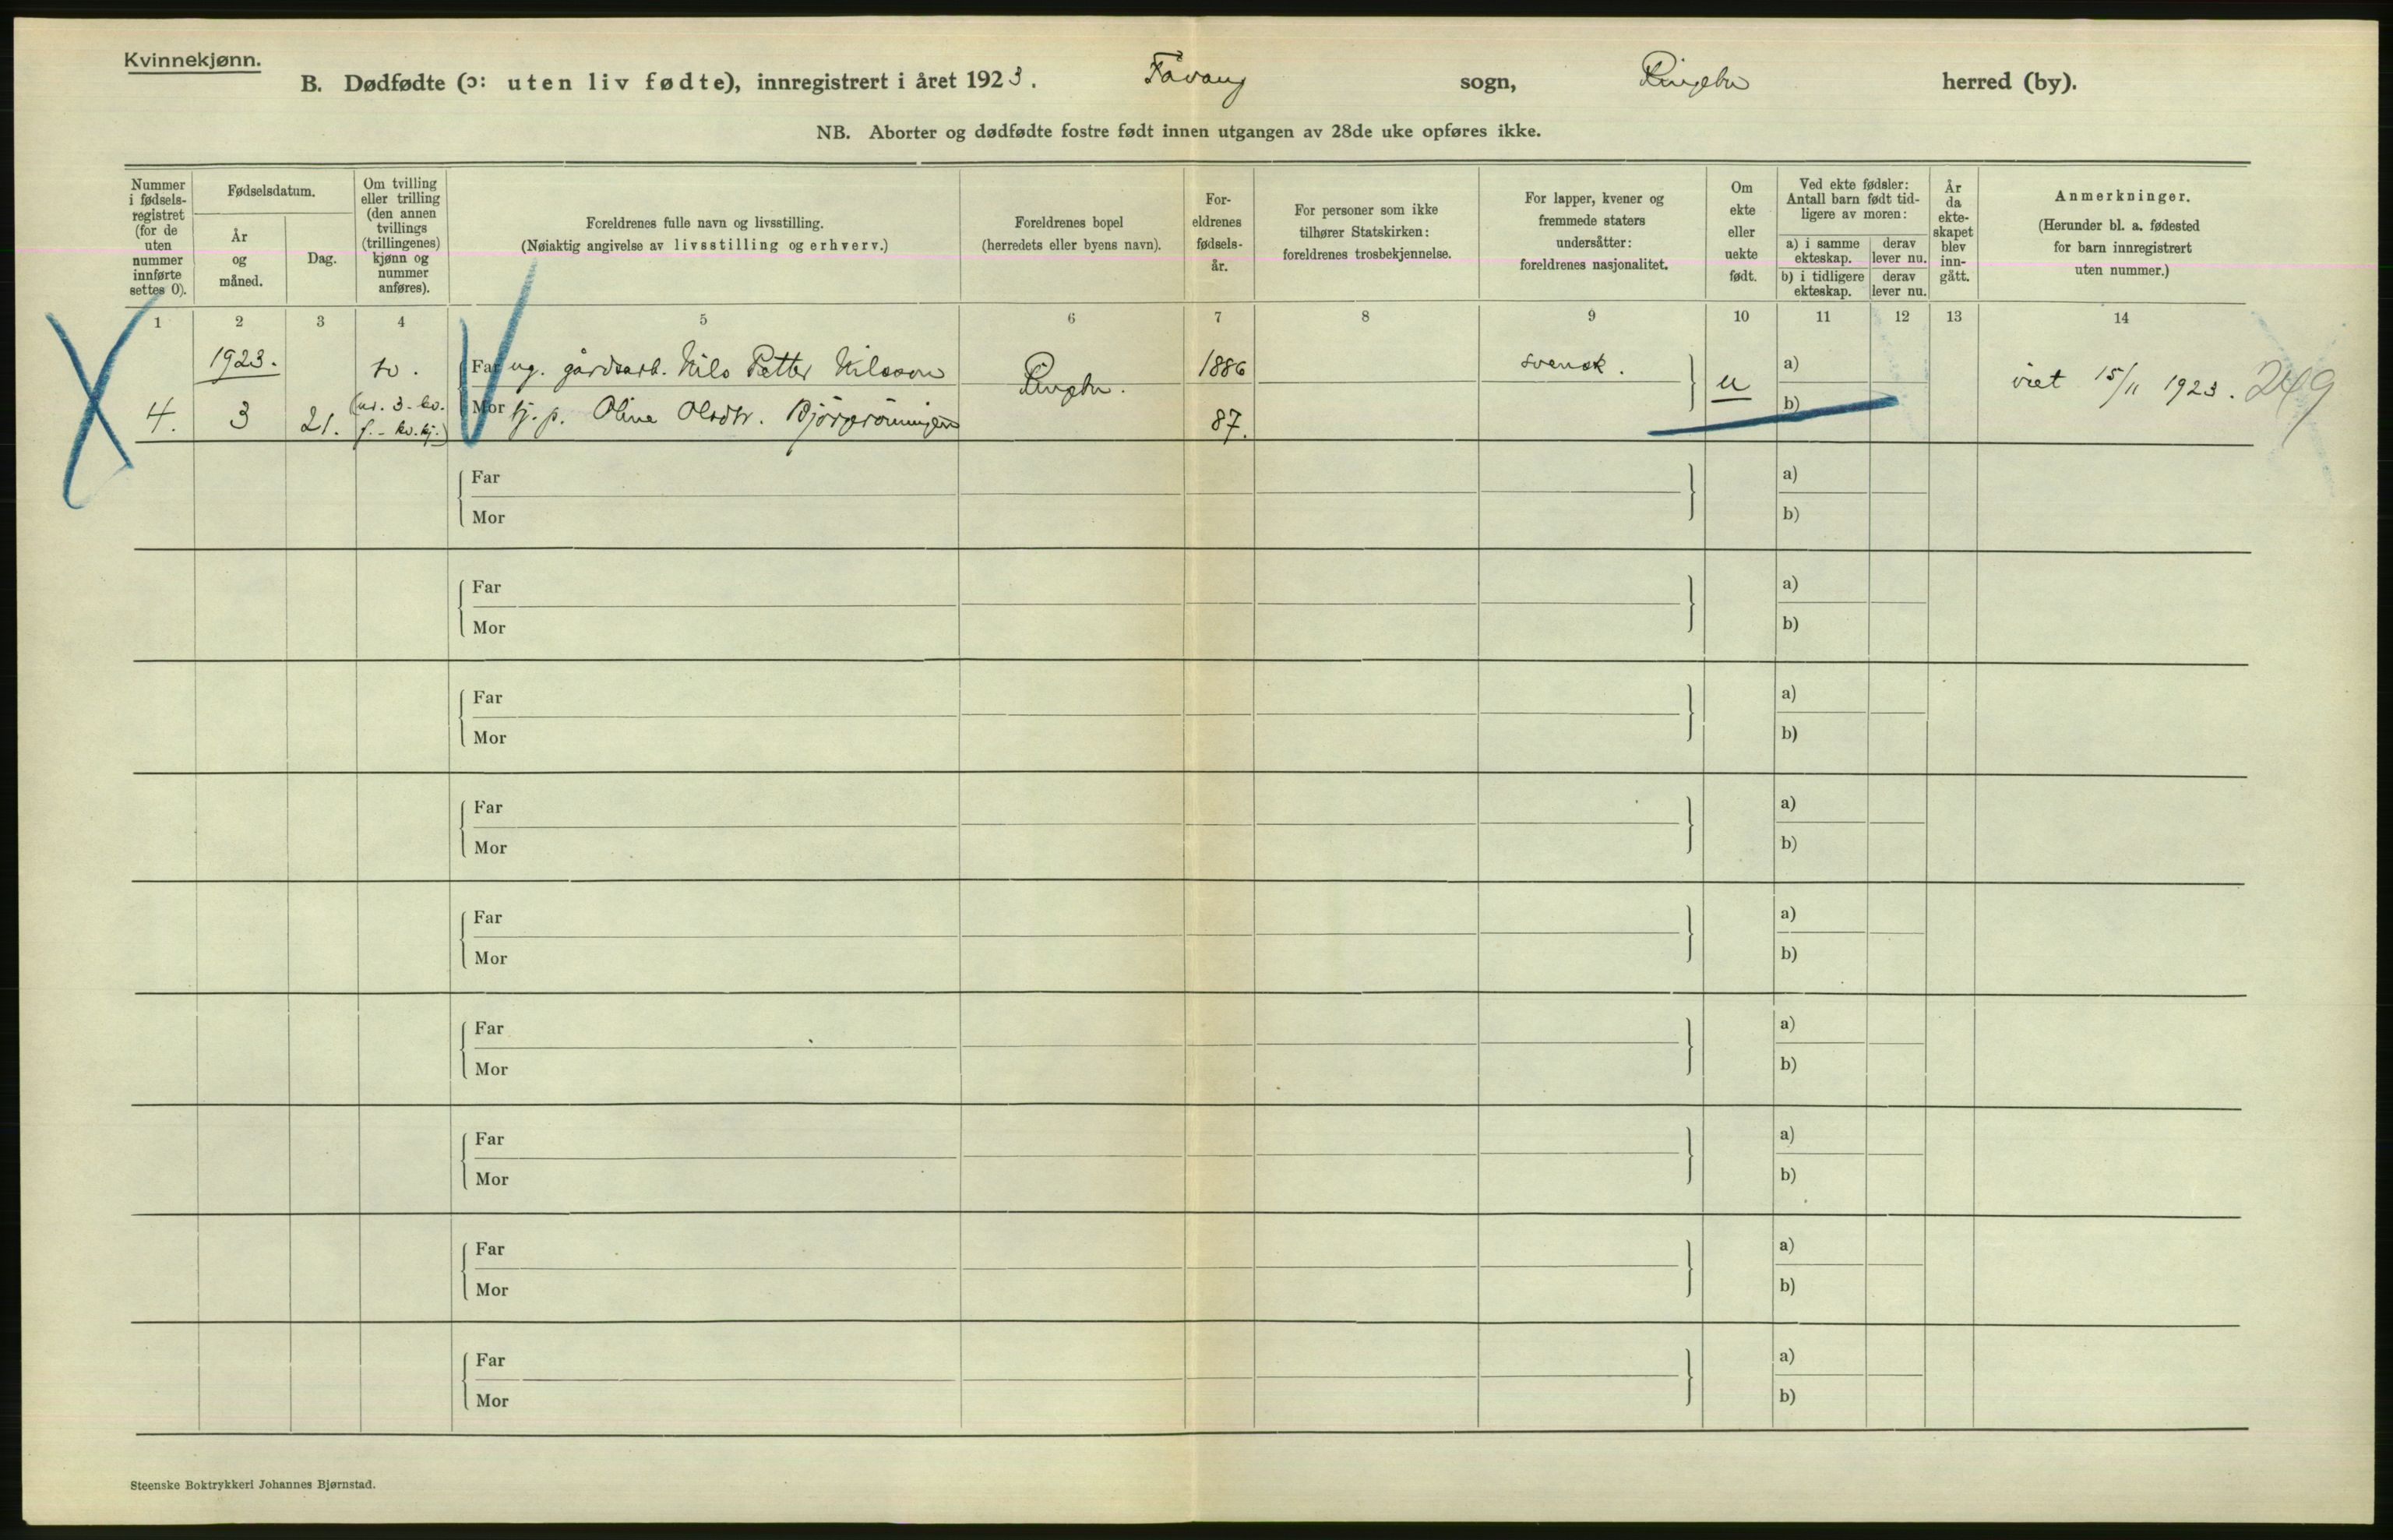 Kvinnekjønn.
B. Dødfødte (ɔ: uten liv fødte), innregistrert i året 1923. Fåvang sogn, Ringebu herred (by).
NB. Aborter og dødfødte fostre født innen utgangen av 28de uke opføres ikke.
Nummer i fødsels- registret (for de uten nummer innførte settes 0).
Fødselsdatum.
År og måned.
Dag.
Om tvilling eller trilling (den annen tvillings (trillingenes) kjønn og nummer anføres).
Foreldrenes fulle navn og livsstilling.
(Nøiaktig angivelse av livsstilling og erhverv.)
Foreldrenes bopel
(herredets eller byens navn).
For- eldrenes fødsels- år.
For personer som ikke tilhører Statskirken: foreldrenes trosbekjennelse.
For lapper, kvener og fremmede staters undersåtter: foreldrenes nasjonalitet.
Om ekte eller uekte født.
Ved ekte fødsler: Antall barn født tid- ligere av moren:
a) i samme ekteskap.
derav lever nu.
b) i tidligere ekteskap.
derav lever nu.
År da ekte- skapet blev inn- gått.
Anmerkninger.
(Herunder bl. a. fødested for barn innregistrert uten nummer.)
1 2 3 4 5 6 7 8 9 10 11 12 13 14
1923. tv. Far ug. gårdsarb. Nils Petter Nilsson Ringebu. 1886 svensk. u a) viet 15/11 1923. 249
4. 3 21. (nr. 3 - kv. f. - kv.kj.) Mor tj.p. Oline Olsdtr. Bjørgerønningen 87. b)
Far a)
Mor b)
Far a)
Mor b)
Far a)
Mor b)
Far a)
Mor b)
Far a)
Mor b)
Far a)
Mor b)
Far a)
Mor b)
Far a)
Mor b)
Far a)
Mor b)
Steenske Boktrykkeri Johannes Bjørnstad.